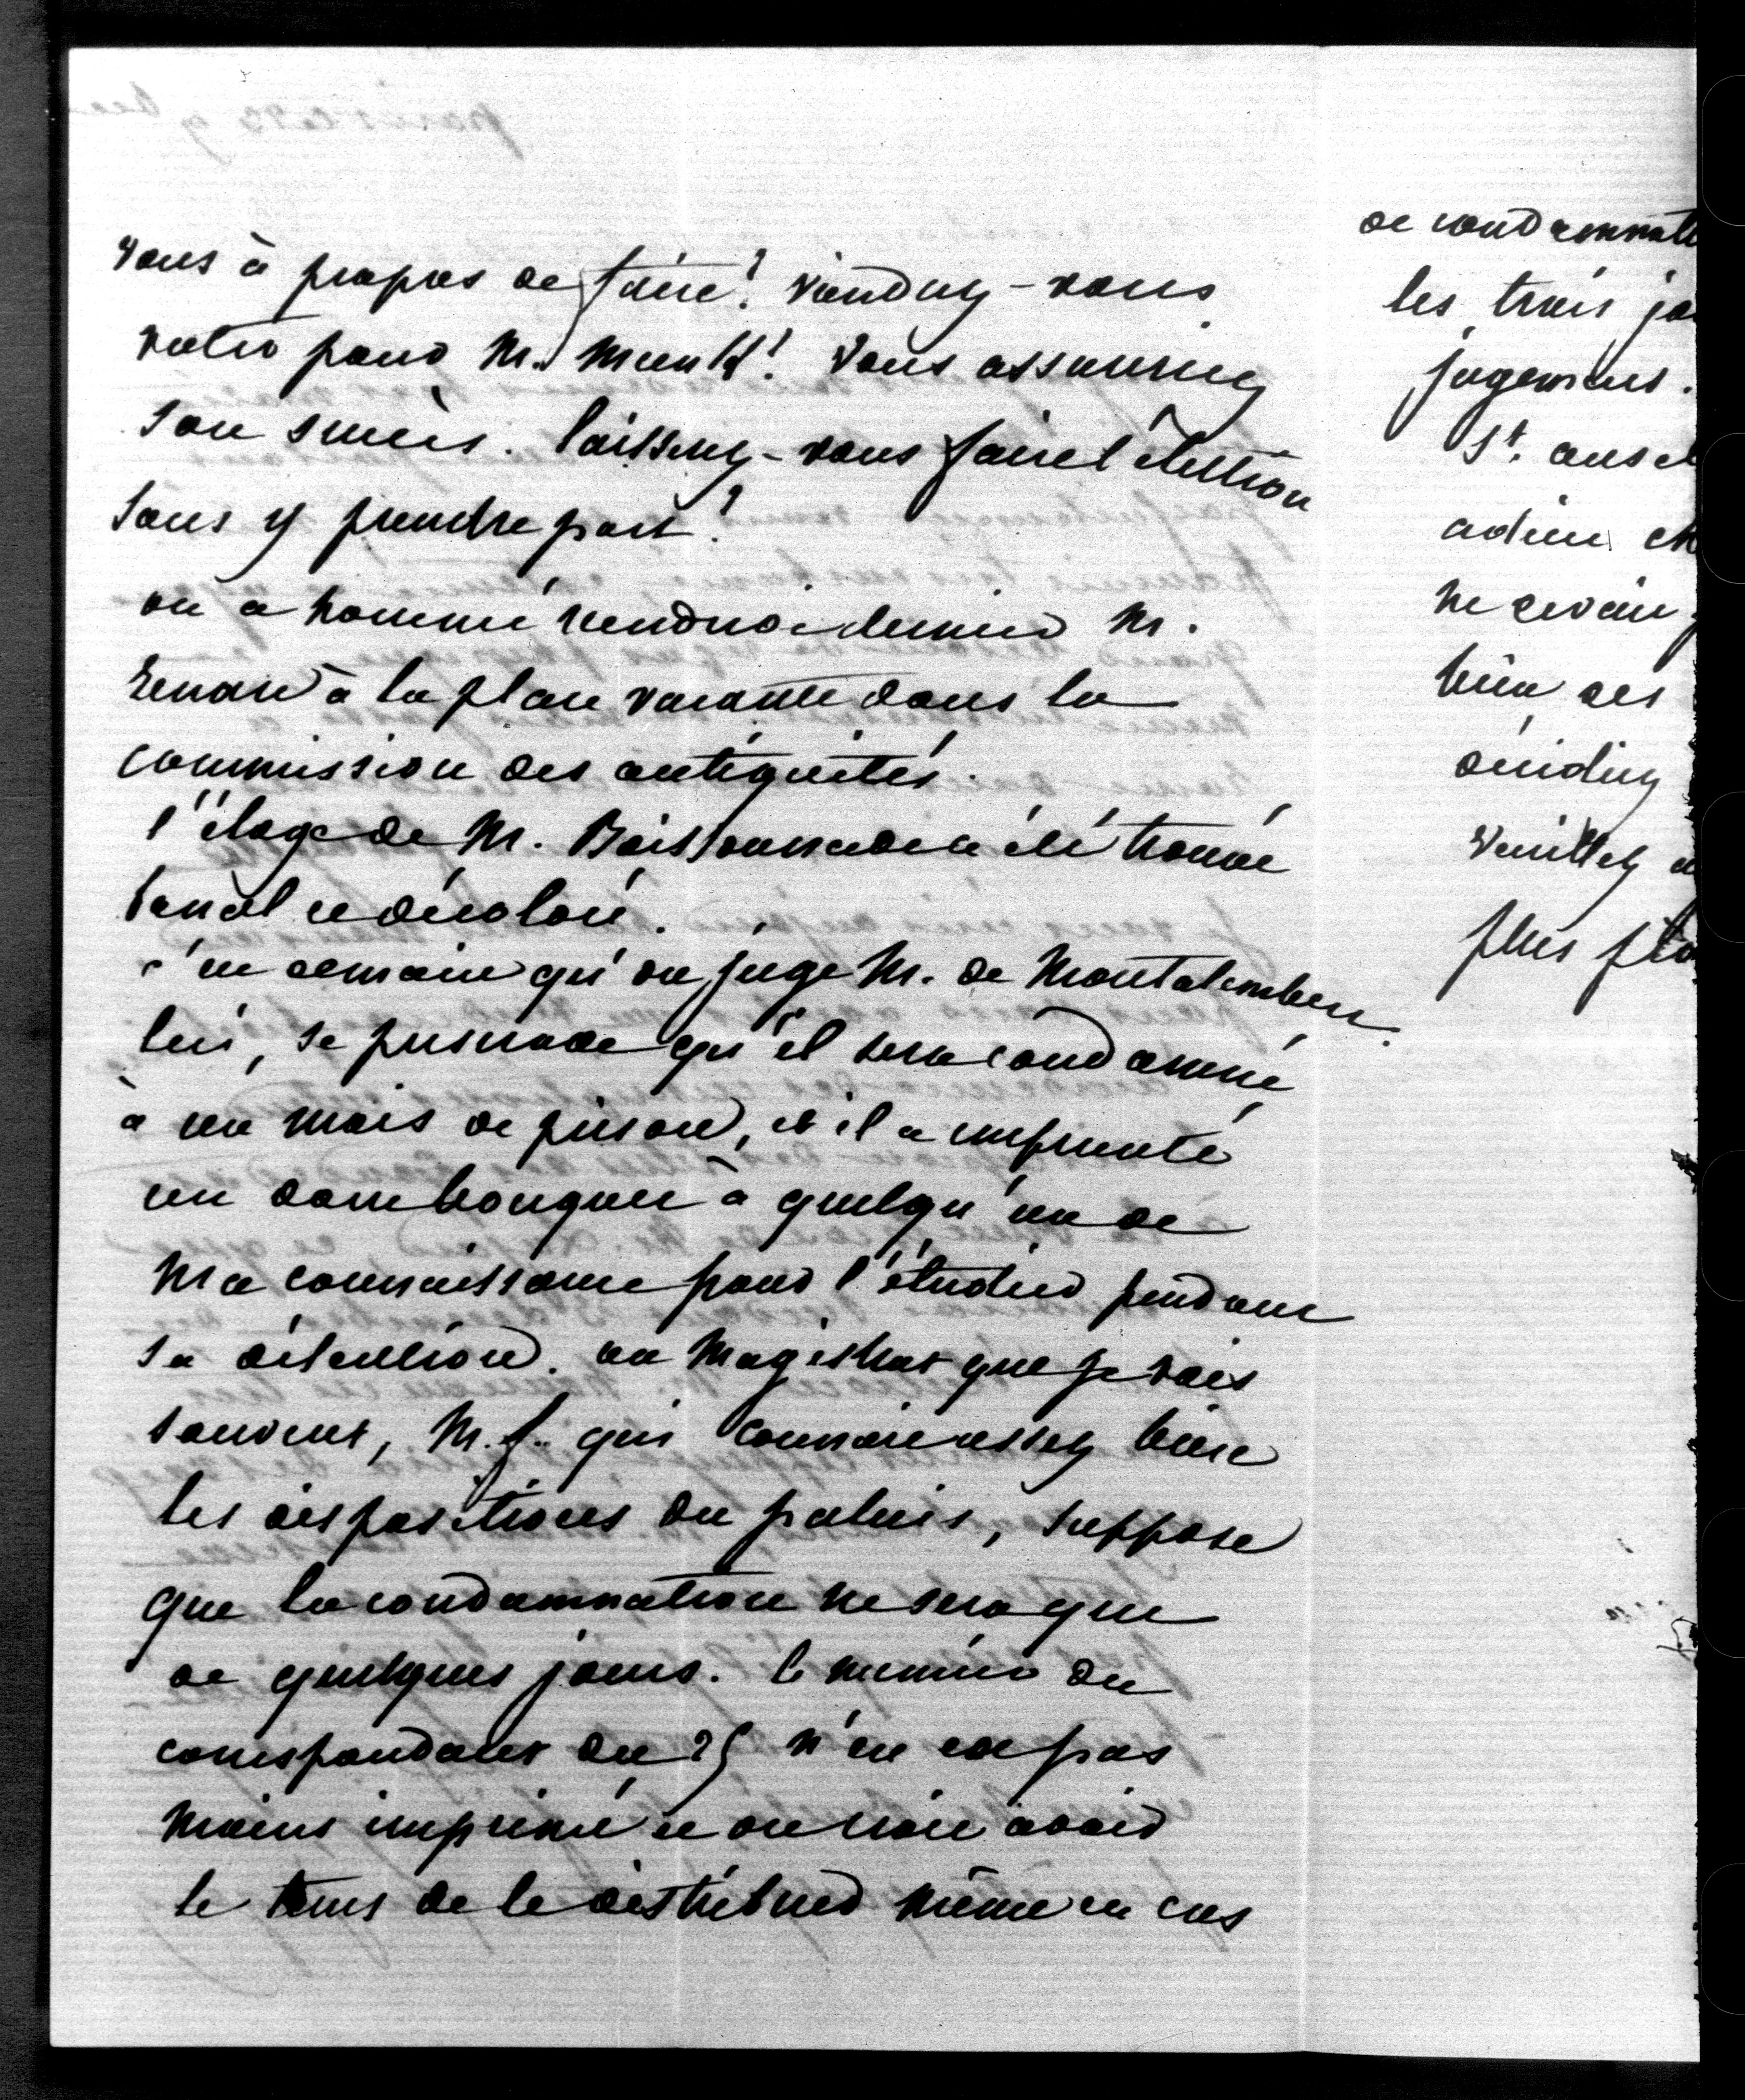 vous à propos de faire? viendrez-vous
voter pour M. Munk? vous assureriez
son succès. laisserez-vous faire l'élection
sans y prendre part?
on a nommé vendredi dernier M.
Renan à la place vacante dans la
commission des antiquités.
l'éloge de M. Boissonnade a été trouvé
banal et décoloré.
c'est demain qu'on juge M. de Montalembert.
lui, se persuade qu'il sera condamné
à un mois de prison, et il a emprunté
un dom bouquet à quelqu'un de
ma connaissance pour l'étudier pendant
sa détention. un magistrat que je vois
souvent, M. f.. qui connait assez bien
les dispositions du palais, suppose
que la condamnation ne sera que
de quelques jours. le numéro du
correspondant du 25 n'en est pas
moins imprimé et on croit avoir
le tems de le distribuer même en cas
de condamnati
les trois jo
jugement.
St. ansel
adieu ch
ne
bien des
décidiez
veuillez a
plus